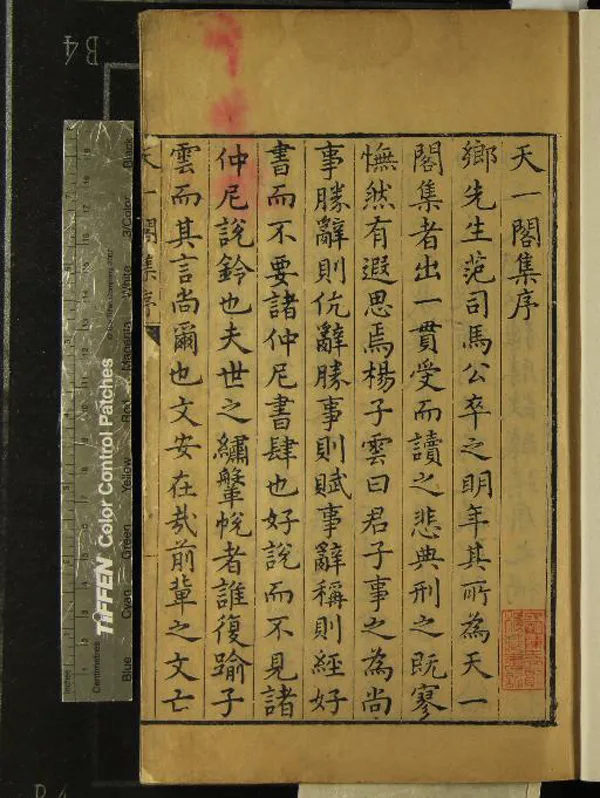 天一閣集序
鄉先生范司馬公卒之明年其所為天一
閣集者出一貫受而讀之悲典刑之既寥
憮然有遐思焉楊子雲曰君子事之為尚
事勝辭則伉辭勝事則賦事辭稱則經好
書而不要諸仲尼書肆也好說而不見諸
仲尼說鈴也夫世之繡鞶帨者誰復踰子
雲而其言尚爾也文安在哉前輩之文亡
天一閣集序
B4
TIFFEN Color Control Patches
Blue Cyan Green Yellow Red Magenta White 3/Color Black
Inches
Centimetres